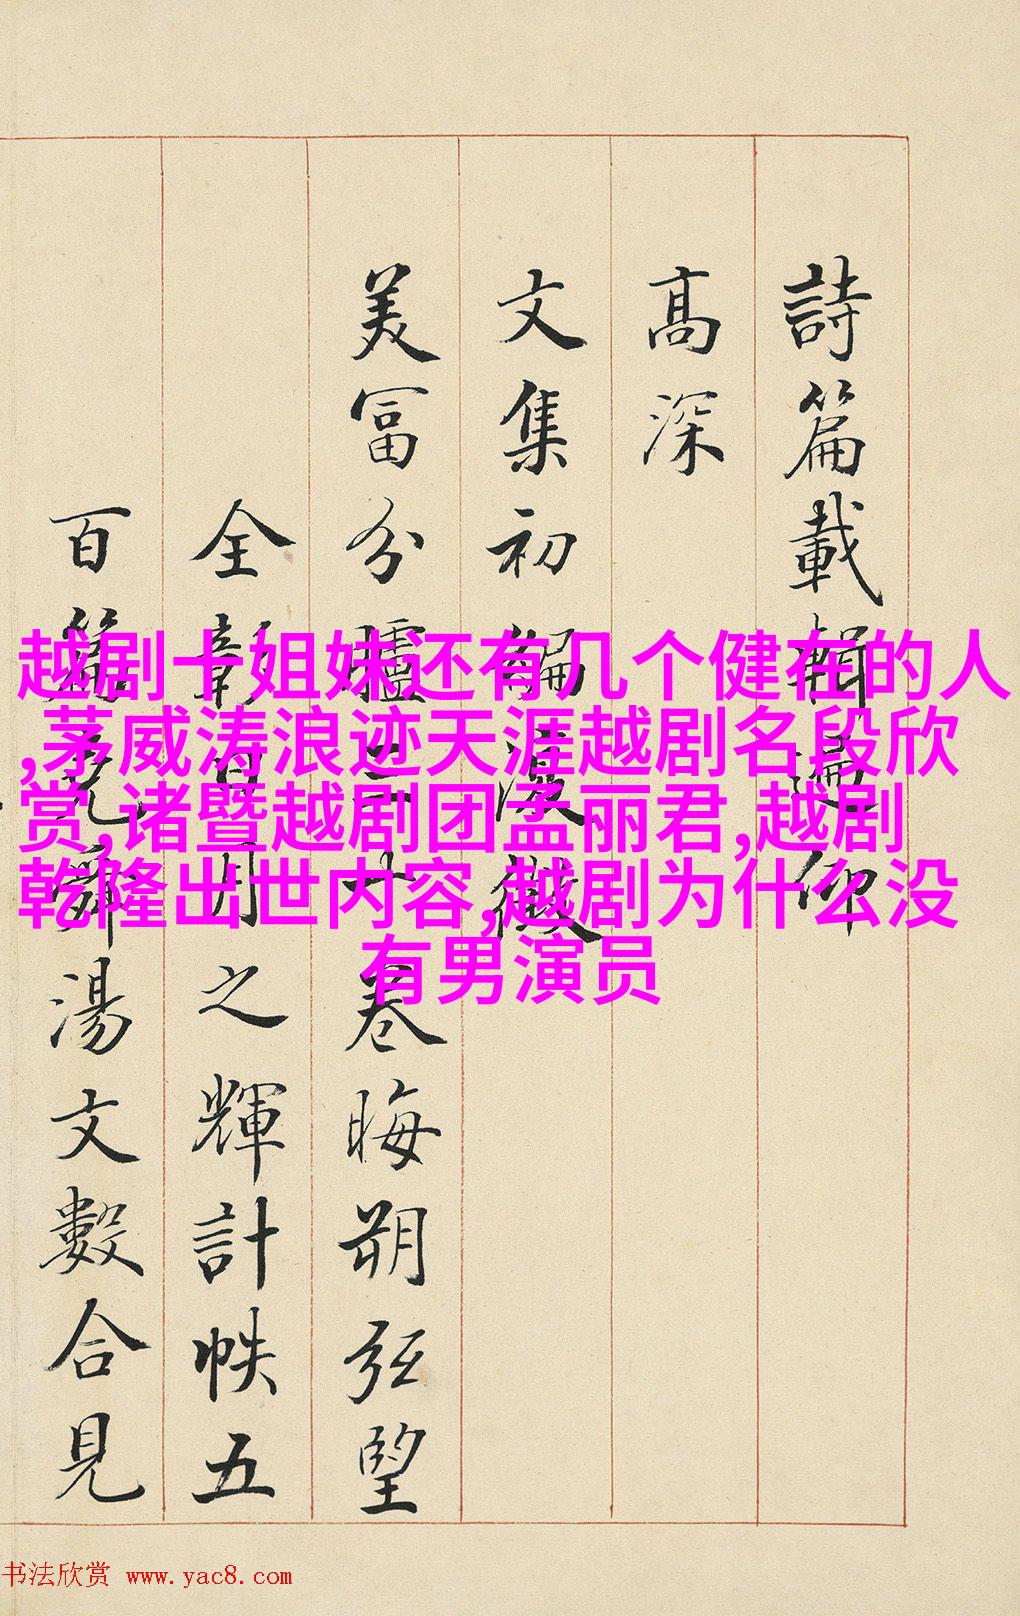 詩篇載輯遍仰
高深
文集初編漫徵
美富分臚二十卷晦朔弦望
全彰日月之輝計帙五
百篇堯舜湯文數合見
越剧十姐妹还有几个健在的人
,茅威涛浪迹天涯越剧名段欣
赏,诸暨越剧团孟丽君,越剧
乾隆出世内容,越剧为什么没
有男演员
书法欣赏 www.yac8.com